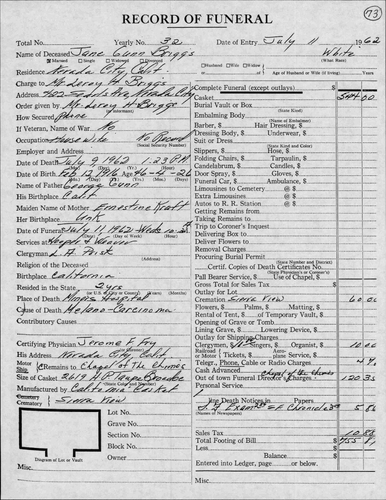 RECORD OF FUNERAL
73
Total No. Yearly No. 32 Date of Entry July 11 1962
Name of Deceased Jane Gunn Briggs White
Married Single Widowed Divorced (What Race)
Residence Nevada City, Calif. Husband Wife Widow of Age of Husband or Wife (if living) Years
Charge to Mr. Leroy H. Briggs
Address Nevada City
Order given by Mr. Leroy H. Briggs
How Secured Phone
If Veteran, Name of War No
Occupation Housewife No Record
(Social Security Number)
Employer and Address
Date of Death July 9, 1962 1:23 P.M.
Date of Birth Feb 12, 1916 46-4-26
Name of Father George Gunn
His Birthplace Calif
Maiden Name of Mother Ernestine Kraft
Her Birthplace Unk
Date of Funeral July 11, 1962
Services at Hooper & Weaver
Clergyman L.A. Post
(Address)
Religion of the Deceased
Birthplace California
Resided in the State 2 yrs
Place of Death Miners Hospital
Cause of Death Melano-Carcinoma
Contributory Causes
Certifying Physician Jerome F. Fry
His Address Nevada City, Calif.
Ship Remains to Chapel of The Chimes
Size of Casket 26/9
Manufactured by California Casket
Cemetery
Crematory Sierra View
Lot No.
Grave No.
Section No.
Block No.
Owner
Diagram of Lot or Vault
Misc.
Complete Funeral (except outlays) $
Casket
Burial Vault or Box
(State Kind)
Embalming Body
(Name of Embalmer)
Barber, $ Hair Dressing, $
Dressing Body, $ Underwear, $
Suit or Dress
(State Kind and Color)
Slippers, $ Hose, $
Folding Chairs, $ Tarpaulin, $
Candelabrum, $ Candles, $
Door Spray, $ Gloves, $
Funeral Car, $ Ambulance, $
Limousines to Cemetery @ $
Extra Limousines @ $
Autos to R. R. Station @ $
Getting Remains from
Taking Remains to
Trip to Coroner's Inquest
Delivering Box to
Deliver Flowers to
Removal Charges
Procuring Burial Permit
(State District and Number)
Certif. Copies of Death Certificates No.
(State Physician's or Coroner's)
Pall Bearer Service, $ Use of Chapel, $
Gross Total for Sales Tax $
Outlay for Lot
Cremation Sierra View 60 00
Flowers, $ Palms, $ Matting, $
Rental of Tent, $ of Temporary Vault, $
Opening of Grave or Tomb
Lining Grave, $ Lowering Device, $
Outlay for Shipping Charges
Clergyman, $ Singers, $ Organist, $ 10 00
Telegr., Phone, Cable or Radio Charges
Cash Advanced
Out of town Funeral Director's Charges, $ Chapel of the Chimes
Personal Service
Line Death Notices in Papers
S.F. Examiner & Chronicle
(Names of Newspapers)
Sales Tax
Total Footing of Bill $
Less
Balance $
Entered into Ledger, page or below.
Misc.